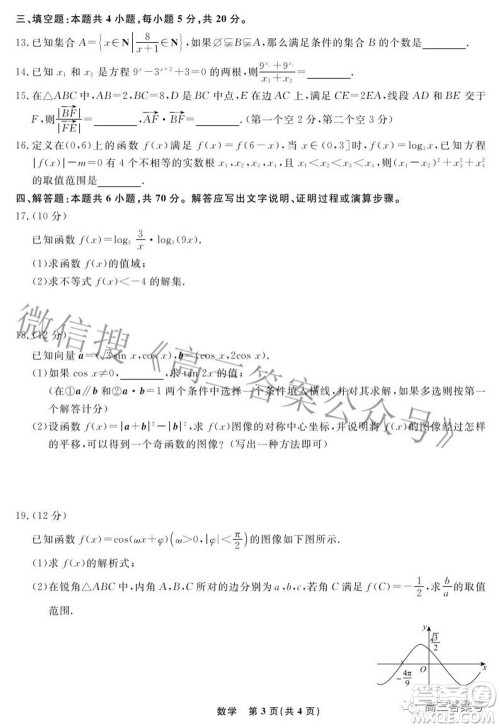 三、填空题：本题共 4 小题，每小题 5 分，共 20 分。
13. 已知集合 A={x∈N|8/(x+1)∈N}，如果∅⫋B⫋A，那么满足条件的集合 B 的个数是________．
14. 已知 x₁ 和 x₂ 是方程 9ˣ-3ˣ⁺²+3=0 的两根，则 (9^x₁+9^x₂)/(x₁+x₂)=________．
15. 在△ABC 中，AB=2，BC=8，D 是 BC 中点，E 在边 AC 上，满足 CE=2EA，线段 AD 和 BE 交于
F，则 |BF|/|FE|=________，AF·BF=________．（第一个空 2 分，第二个空 3 分）
16. 定义在(0,6)上的函数 f(x)满足 f(x)=f(6-x)，当 x∈(0,3]时，f(x)=log₃x，已知方程
|f(x)|-m=0 有 4 个不相等的实数根 x₁<x₂<x₃<x₄，则
的取值范围是________．
四、解答题：本题共 6 小题，共 70 分。解答应写出文字说明、证明过程或演算步骤。
17. (10 分)
已知函数 f(x)=log₃ 3/x · log₃(9x)．
(1)求函数 f(x)的值域；
(2)求不等式 f(x)<-4 的解集．
18. (12 分)
已知向量 a=(√3sin x,cos x)，b=(2cos x,2cos x)．
(1)如果 cos x≠0，________，求 tan 2x 的值．
(在①a∥b 和②a·b=1 两个条件中选择一个条件填入横线，并对其求解，如果多选则按第一
个解答计分)
(2)设函数 f(x)=|a+b|²-|a-b|²，求 f(x)图像的对称中心坐标，并说明将函数图像经过怎样
的平移，可以得到一个奇函数的图像？(写出一种可能)
19. (12 分)
已知函数 f(x)=cos(ωx+φ)(ω>0,|φ|<π/2)图像如下图所示．
(1)求 f(x)的解析式；
(2)在锐角△ABC 中，内角 A，B，C 所对的边分别为 a，b，c，若角 C 满足 f(C)=-1/2，求 b/a 的取值
范围．
y
√3/2
-4π/9
O
x
微信搜《高三答案公众号》
数学 第 3 页(共 4 页)
高三答案号